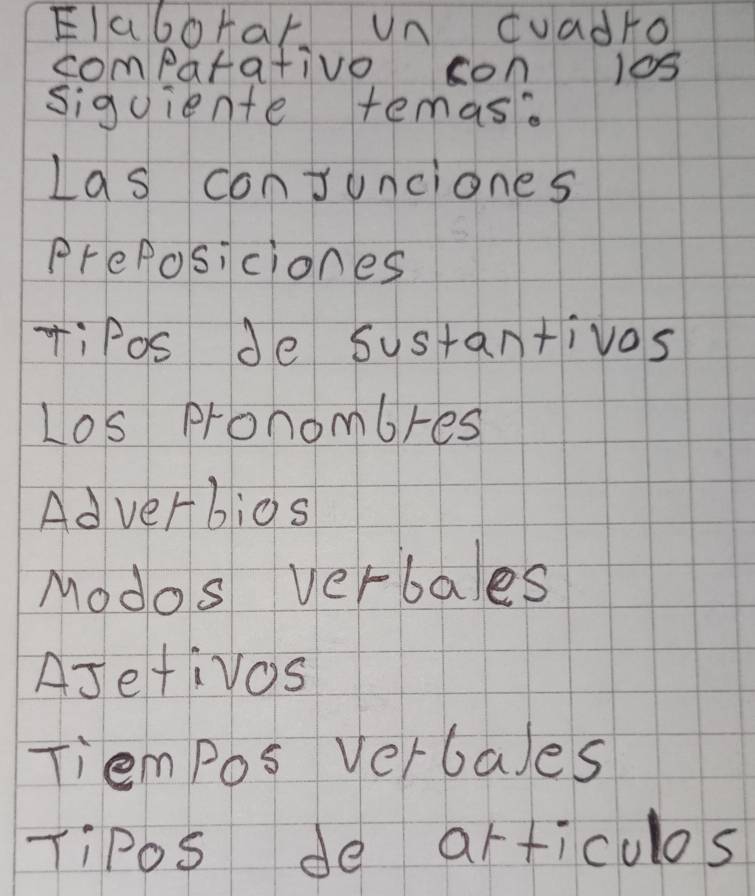 Elaborar un cuadro
comparativo con los
siguiente temas:
Las conjunciones
Preposiciones
Tipos de sustantivos
Los pronombres
Adverbios
Modos verbales
Ajetivos
Tiempos verbales
Tipos de articulos